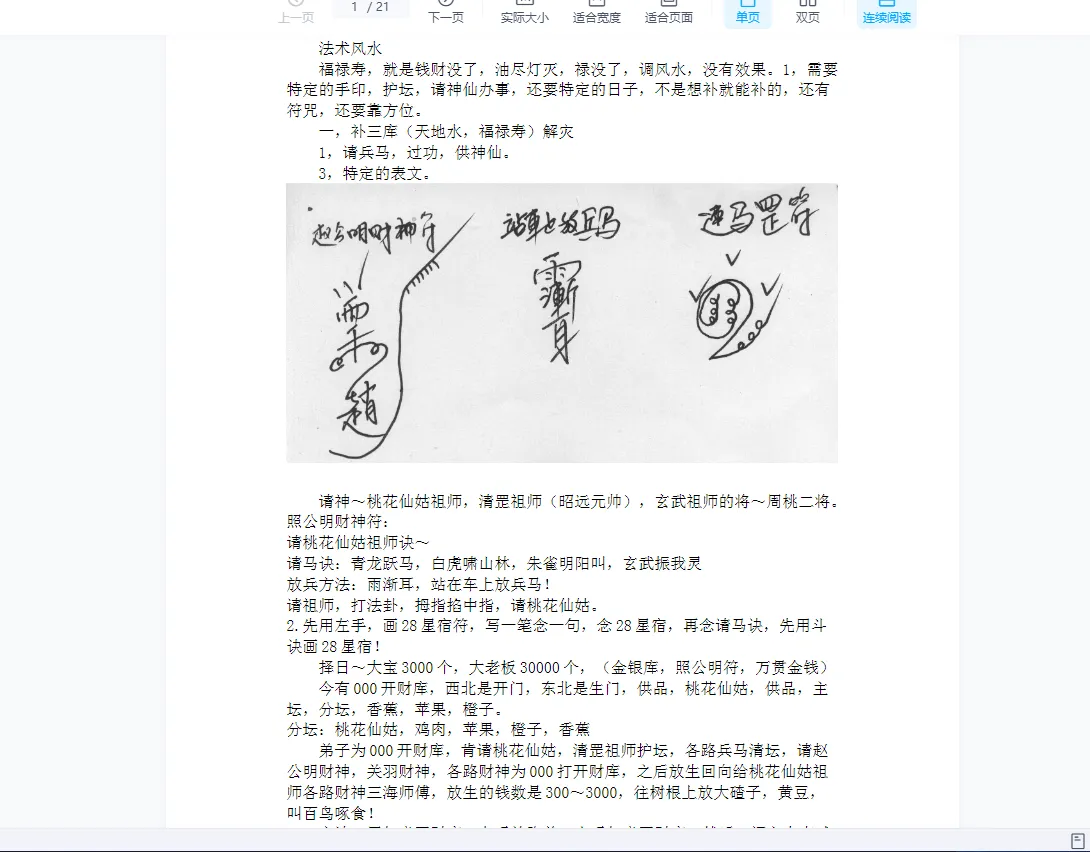 上一页
1 / 21
下一页
实际大小
适合宽度
适合页面
单页
双页
连续阅读
法术风水
福禄寿，就是钱财没了，油尽灯灭，禄没了，调风水，没有效果。1，需要
特定的手印，护坛，请神仙办事，还要特定的日子，不是想补就能补的，还有
符咒，还要靠方位。
一，补三库（天地水，福禄寿）解灾
1，请兵马，过功，供神仙。
3，特定的表文。
赵公明财神符
站車上放兵马
速马罡符
雨
渐
耳
趙
请神～桃花仙姑祖师，清罡祖师（昭远元帅），玄武祖师的将～周桃二将。
照公明财神符：
请桃花仙姑祖师诀～
请马诀：青龙跃马，白虎啸山林，朱雀明阳叫，玄武振我灵
放兵方法：雨渐耳，站在车上放兵马！
请祖师，打法卦，拇指掐中指，请桃花仙姑。
2.先用左手，画28星宿符，写一笔念一句，念28星宿，再念请马诀，先用斗
诀画28星宿！
择日～大宝3000个，大老板30000个，（金银库，照公明符，万贯金钱）
今有000开财库，西北是开门，东北是生门，供品，桃花仙姑，供品，主
坛，分坛，香蕉，苹果，橙子。
分坛：桃花仙姑，鸡肉，苹果，橙子，香蕉
弟子为000开财库，肯请桃花仙姑，清罡祖师护坛，各路兵马清坛，请赵
公明财神，关羽财神，各路财神为000打开财库，之后放生回向给桃花仙姑祖
师各路财神三海师傅，放生的钱数是300～3000，往树根上放大碴子，黄豆，
叫百鸟啄食！